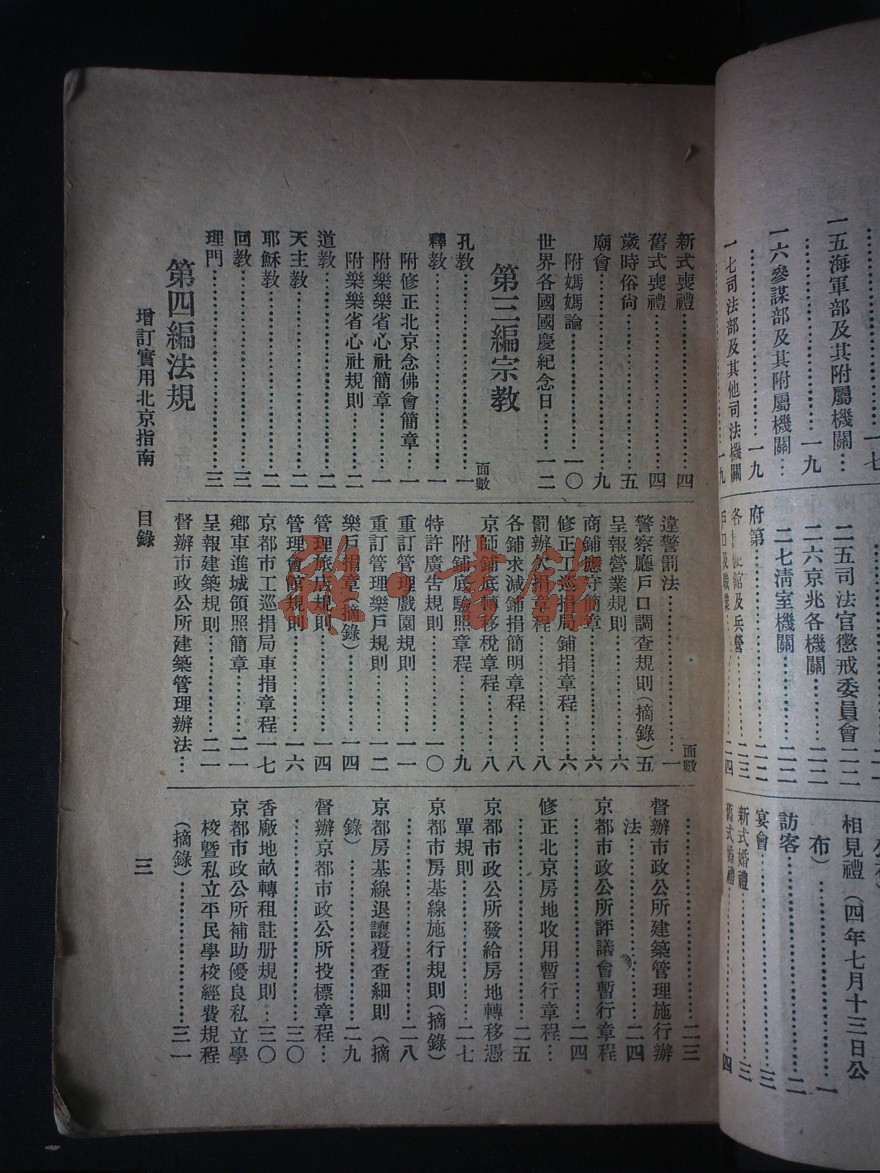 一五海軍部及其附屬機關…一七
一六參謀部及其附屬機關…一九
一七司法部及其他司法機關…一九
二五司法官懲戒委員會…二二
二六京兆各機關…二二
二七清室機關…二二
府第…二二
相見禮(四年七月十三日公
布)…一
訪客…二
宴會…三
新式婚禮…三
舊式婚禮…四
新式喪禮…四
舊式喪禮…四
歲時俗尚…五
廟會…九
附媽媽論…一〇
世界各國國慶紀念日…一二
第三編宗教
面數
孔教…一
釋教…一
附修正北京念佛會簡章…一
附樂樂省心社簡章…一
附樂樂省心社規則…二
道教…二
天主教…二
耶穌教…二
回教…三
理門…三
第四編法規
面數
違警罰法…一
警察廳戶口調查規則(摘錄)五
呈報營業規則…六
商鋪應守簡章…六
修正工巡捐局鋪捐章程…六
罰辦欠捐章程…八
各鋪求減鋪捐簡明章程…八
京師鋪底轉移稅章程…八
附鋪底驗照章程…九
特許廣告規則…一〇
重訂管理戲園規則…一一
重訂管理樂戶規則…一二
樂戶捐章(摘錄)…一四
管理旅店規則…一四
管理會館規則…一六
京都市工巡捐局車捐章程一七
鄉車進城領照簡章…二一
呈報建築規則…二一
督辦市政公所建築管理辦法…
二三
督辦市政公所建築管理施行辦
法…二四
京都市政公所評議會暫行章程
…二四
修正北京房地收用暫行章程…
…二五
京都市政公所發給房地轉移憑
單規則…二七
京都市房基線施行規則(摘錄)
…二八
京都房基線退讓覆查細則(摘
錄)…二九
督辦京都市政公所投標章程…
…三〇
香廠地畝轉租註册規則…三〇
京都市政公所補助優良私立學
校暨私立平民學校經費規程
(摘錄)…三一
增訂實用北京指南 目錄 三